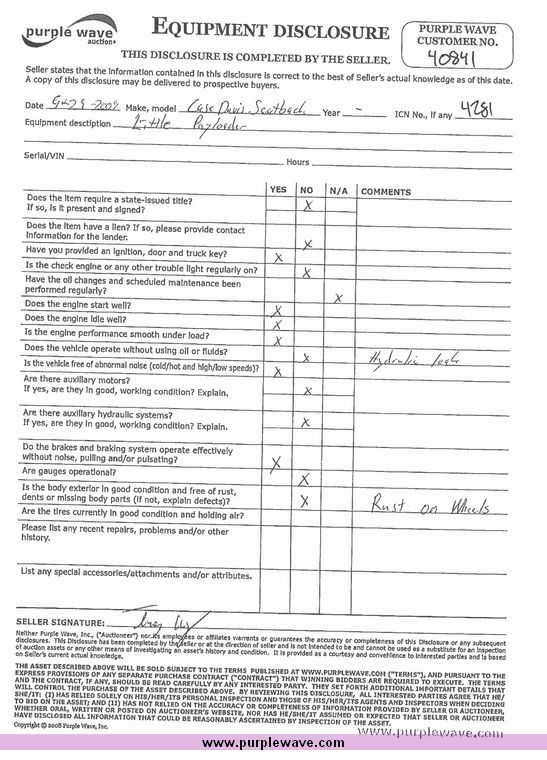 purple wave
auction
EQUIPMENT DISCLOSURE
PURPLE WAVE
CUSTOMER NO.
40841
THIS DISCLOSURE IS COMPLETED BY THE SELLER.
Seller states that the information contained in this disclosure is correct to the best of Seller's actual knowledge as of this date.
A copy of this disclosure may be delivered to prospective buyers.
Date Make, model Case Davis Year - ICN No., if any 4281
Equipment description Little Payloader
Serial/VIN Hours
YES NO N/A COMMENTS
Does the item require a state-issued title?
If so, is it present and signed? X
Does the item have a lien? If so, please provide contact
information for the lender. X
Have you provided an ignition, door and truck key? X
Is the check engine or any other trouble light regularly on? X
Have the oil changes and scheduled maintenance been
performed regularly? X
Does the engine start well? X
Does the engine idle well? X
Is the engine performance smooth under load? X
Does the vehicle operate without using oil or fluids? X Hydraulic leak
Is the vehicle free of abnormal noise (cold/hot and high/low speeds)? X
Are there auxiliary motors?
If yes, are they in good, working condition? Explain. X
Are there auxiliary hydraulic systems?
If yes, are they in good, working condition? Explain. X
Do the brakes and braking system operate effectively
without noise, pulling and/or pulsating? X
Are gauges operational? X
Is the body exterior in good condition and free of rust,
dents or missing body parts (if not, explain defects)? X Rust on Wheels
Are the tires currently in good condition and holding air?
Please list any recent repairs, problems and/or other
history.
List any special accessories/attachments and/or attributes.
SELLER SIGNATURE:
Neither Purple Wave, Inc., ("Auctioneer") nor its employees or affiliates warrants or guarantees the accuracy or completeness of this Disclosure or any subsequent
disclosures. This Disclosure has been completed by the seller or at the direction of seller and is not intended to be and cannot be used as a substitute for an inspection
of auction assets or any other means of investigating an asset's history and condition. It is provided as a courtesy and convenience to interested parties and is based
on Seller's current actual knowledge.
THE ASSET DESCRIBED ABOVE WILL BE SOLD SUBJECT TO THE TERMS PUBLISHED AT WWW.PURPLEWAVE.COM ("TERMS"), AND PURSUANT TO THE
EXPRESS PROVISIONS OF ANY SEPARATE PURCHASE CONTRACT ("CONTRACT") THAT WINNING BIDDERS ARE REQUIRED TO EXECUTE. THE TERMS
AND THE CONTRACT, IF ANY, SHOULD BE READ CAREFULLY BY ANY INTERESTED PARTY. THEY SET FORTH ADDITIONAL IMPORTANT DETAILS THAT
WILL CONTROL THE PURCHASE OF THE ASSET DESCRIBED ABOVE. BY REVIEWING THIS DISCLOSURE, ALL INTERESTED PARTIES AGREE THAT HE/
SHE/IT: (I) HAS RELIED SOLELY ON HIS/HER/ITS PERSONAL INSPECTION AND THOSE OF HIS/HER/ITS AGENTS AND INSPECTORS WHEN DECIDING
TO BID ON THE ASSET; AND (II) HAS NOT RELIED ON THE ACCURACY OR COMPLETENESS OF INFORMATION PROVIDED BY SELLER OR AUCTIONEER,
WHETHER ORAL, WRITTEN OR POSTED ON AUCTIONEER'S WEBSITE, NOR HAS HE/SHE/IT ASSUMED OR EXPECTED THAT SELLER OR AUCTIONEER
HAVE DISCLOSED ALL INFORMATION THAT COULD BE REASONABLY ASCERTAINED BY INSPECTION OF THE ASSET.
Copyright © 2008 Purple Wave, Inc.
www.purplewave.com
www.purplewave.com